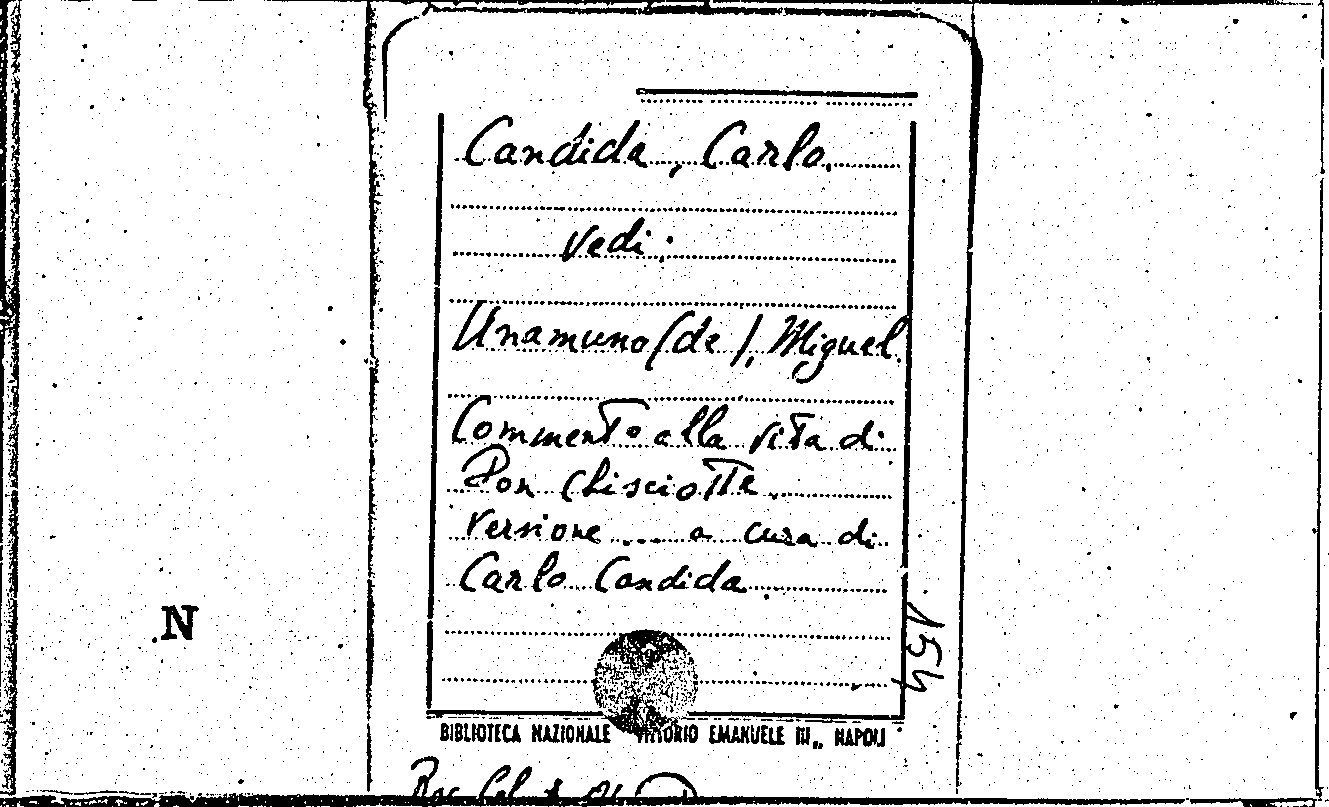 Candida, Carlo.
Vedi:
Unamuno (de), Miguel
Commento alla vita di
Don Chisciotte.
Versione .... a cura di
Carlo Candida.
N
154
BIBLIOTECA NAZIONALE VITTORIO EMANUELE III,, NAPOLI